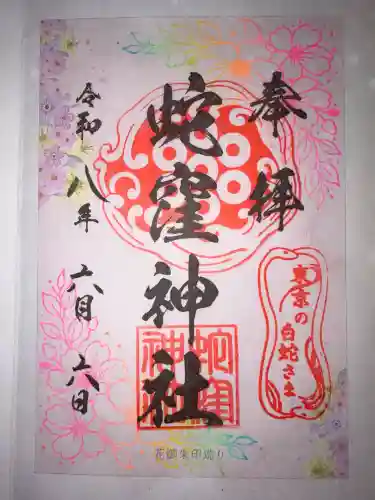 奉拝
蛇窪神社
令和八年 六月 六日
東京の
白蛇さま
蛇窪
神社
花御朱印巡り